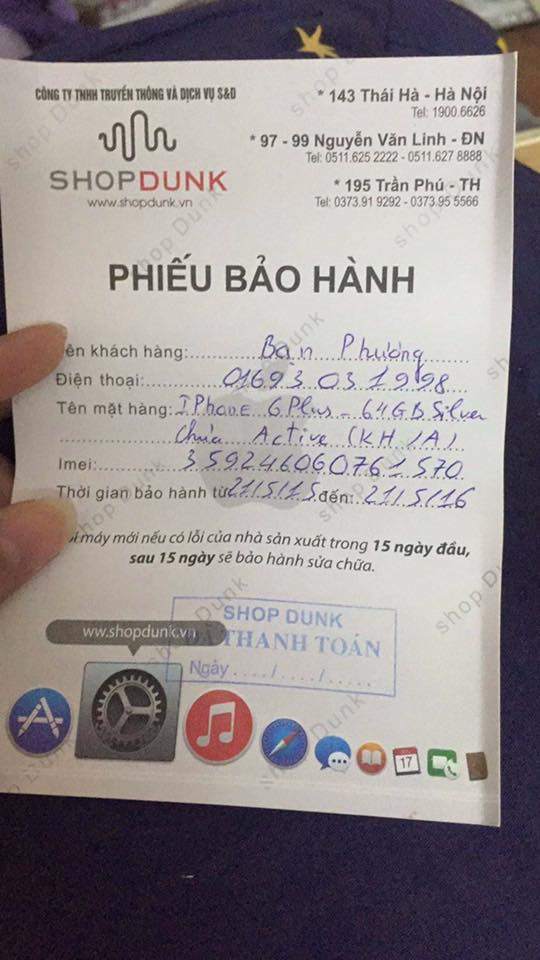 CÔNG TY TNHH TRUYỀN THÔNG VÀ DỊCH VỤ S&D
SHOPDUNK
www.shopdunk.vn
* 143 Thái Hà - Hà Nội
Tel: 1900.6626
* 97 - 99 Nguyễn Văn Linh - ĐN
Tel: 0511.625 2222 - 0511.627 8888
* 195 Trần Phú - TH
Tel: 0373.91 9292 - 0373.95 5566
PHIẾU BẢO HÀNH
ên khách hàng: Bạn Phương
Điện thoại: 01693 03 1998
Tên mặt hàng: IPhone 6 Plus - 64GB Silver
Chưa Active (KH/A)
Imei: 359246060761570
Thời gian bảo hành từ 21/5/15 đến: 21/5/16
máy mới nếu có lỗi của nhà sản xuất trong 15 ngày đầu,
sau 15 ngày sẽ bảo hành sửa chữa.
SHOP DUNK
ĐÃ THANH TOÁN
Ngày ..../..../.....
www.shopdunk.vn
17